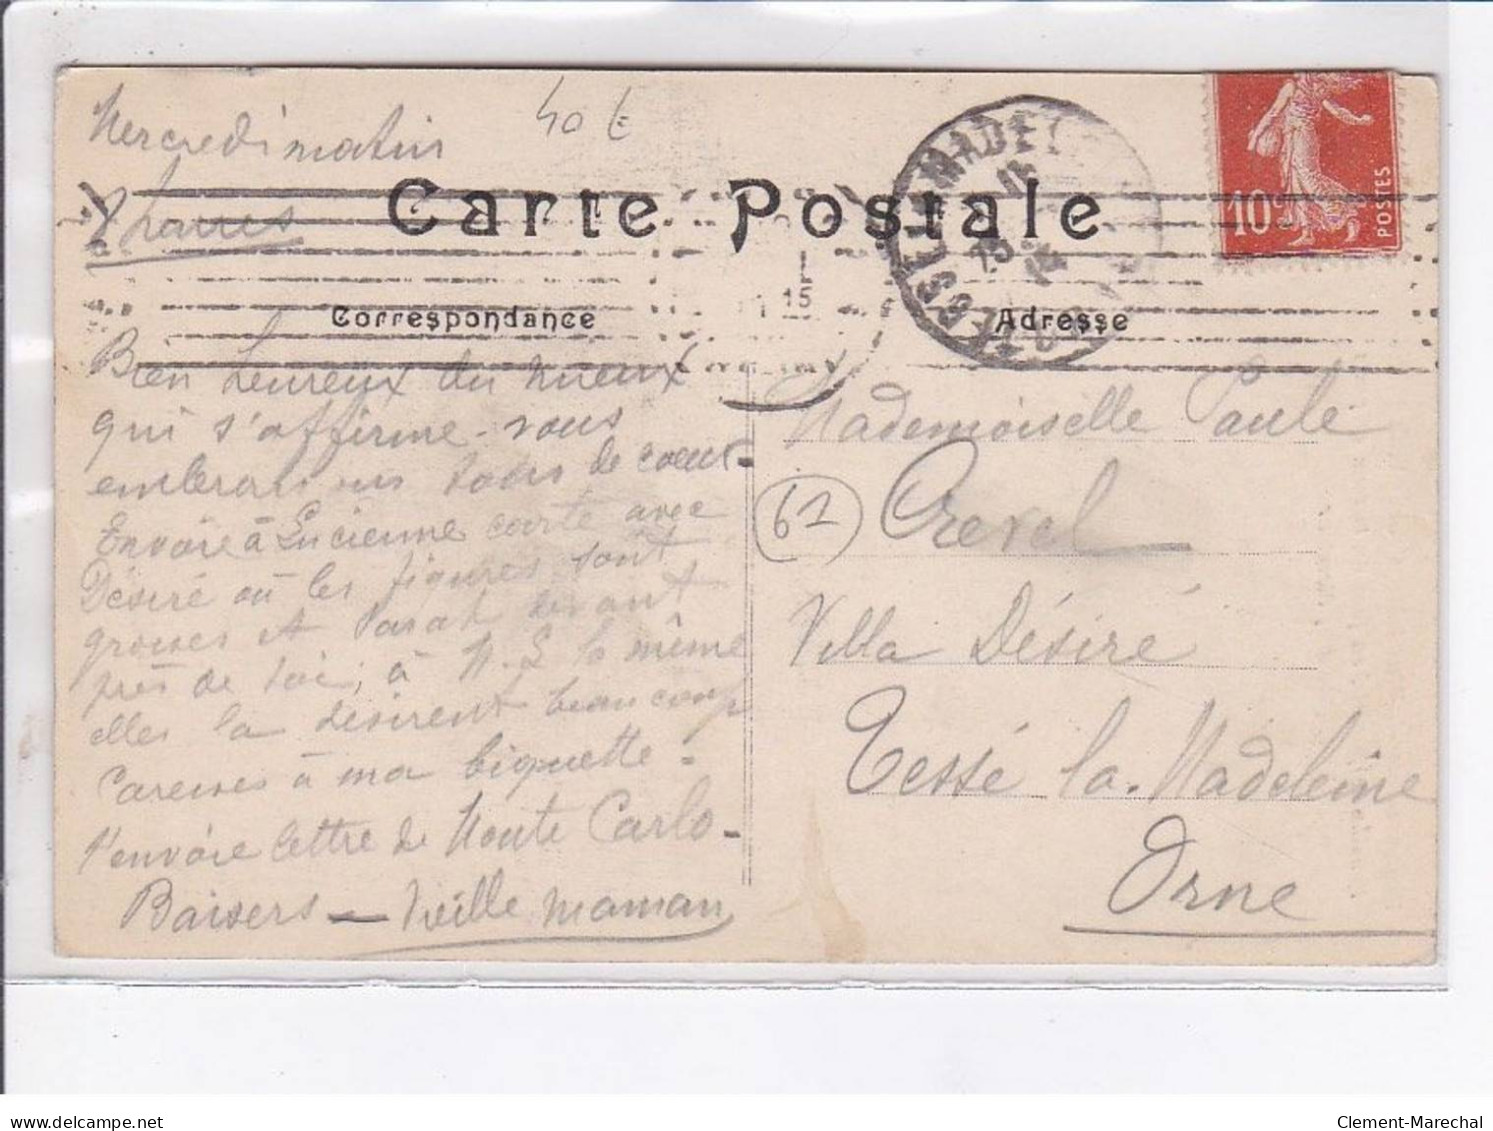 Mercredi matin
40 €
8 heures
Carte Postale
Correspondance
Adresse
15
TESSÉ LA MADELEINE
ORNE
10c
POSTES
Bien heureux du mieux
qui s'affirme - vous
embrassons tous de cœur -
Envoie à Lucienne carte avec
Désiré où les figures sont
grosses et Parat devant
près de toi, à N. S la même
elles la désirent beaucoup
Caresses à ma biquette -
t'envoie lettre de Monte Carlo -
Baisers - Vieille maman
Mademoiselle Paule
61
Crevel
Villa Désiré
Tessé la Madeleine
Orne
delcampe.net
Clement-Marechal